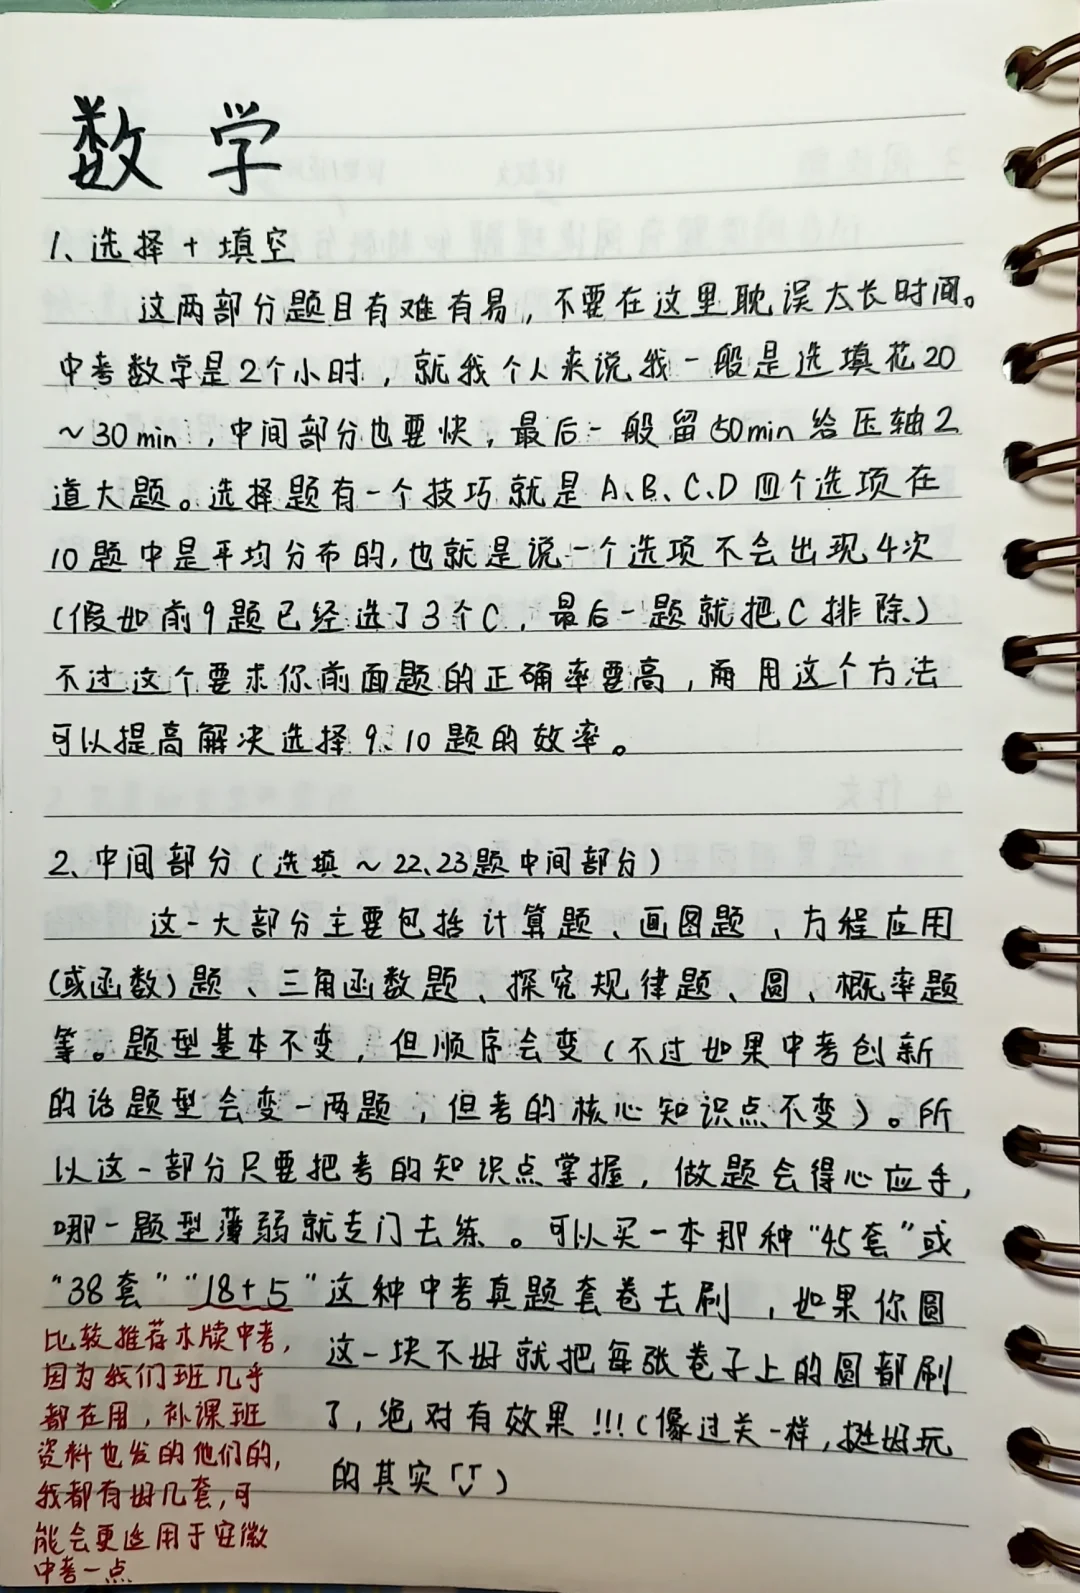 数学
1、选择 + 填空
这两部分题目有难有易，不要在这里耽误太长时间。
中考数学是2个小时，就我个人来说我一般是选填花20
～30min，中间部分也要快，最后一般留50min给压轴2
道大题。选择题有一个技巧就是A、B、C、D四个选项在
10题中是平均分布的，也就是说一个选项不会出现4次
（假如前9题已经选了3个C，最后一题就把C排除）
不过这个要求你前面题的正确率要高，而用这个方法
可以提高解决选择9、10题的效率。
2、中间部分（选填～22、23题中间部分）
这一大部分主要包括计算题、画图题、方程应用
（或函数）题、三角函数题、探究规律题、圆、概率题
等。题型基本不变，但顺序会变（不过如果中考创新
的话题型会变一两题，但考的核心知识点不变）。所
以这一部分只要把考的知识点掌握，做题会得心应手，
哪一题型薄弱就专门去练。可以买一本那种“45套”或
“38套”“18+5”这种中考真题套卷去刷，如果你圆
这一块不好就把每张卷子上的圆都刷
了，绝对有效果!!!（像过关一样，挺好玩
的其实）
比较推荐木牍中考，
因为我们班几乎
都在用，补课班
资料也发的他们的，
我都有好几套，可
能会更适用于安徽
中考一点